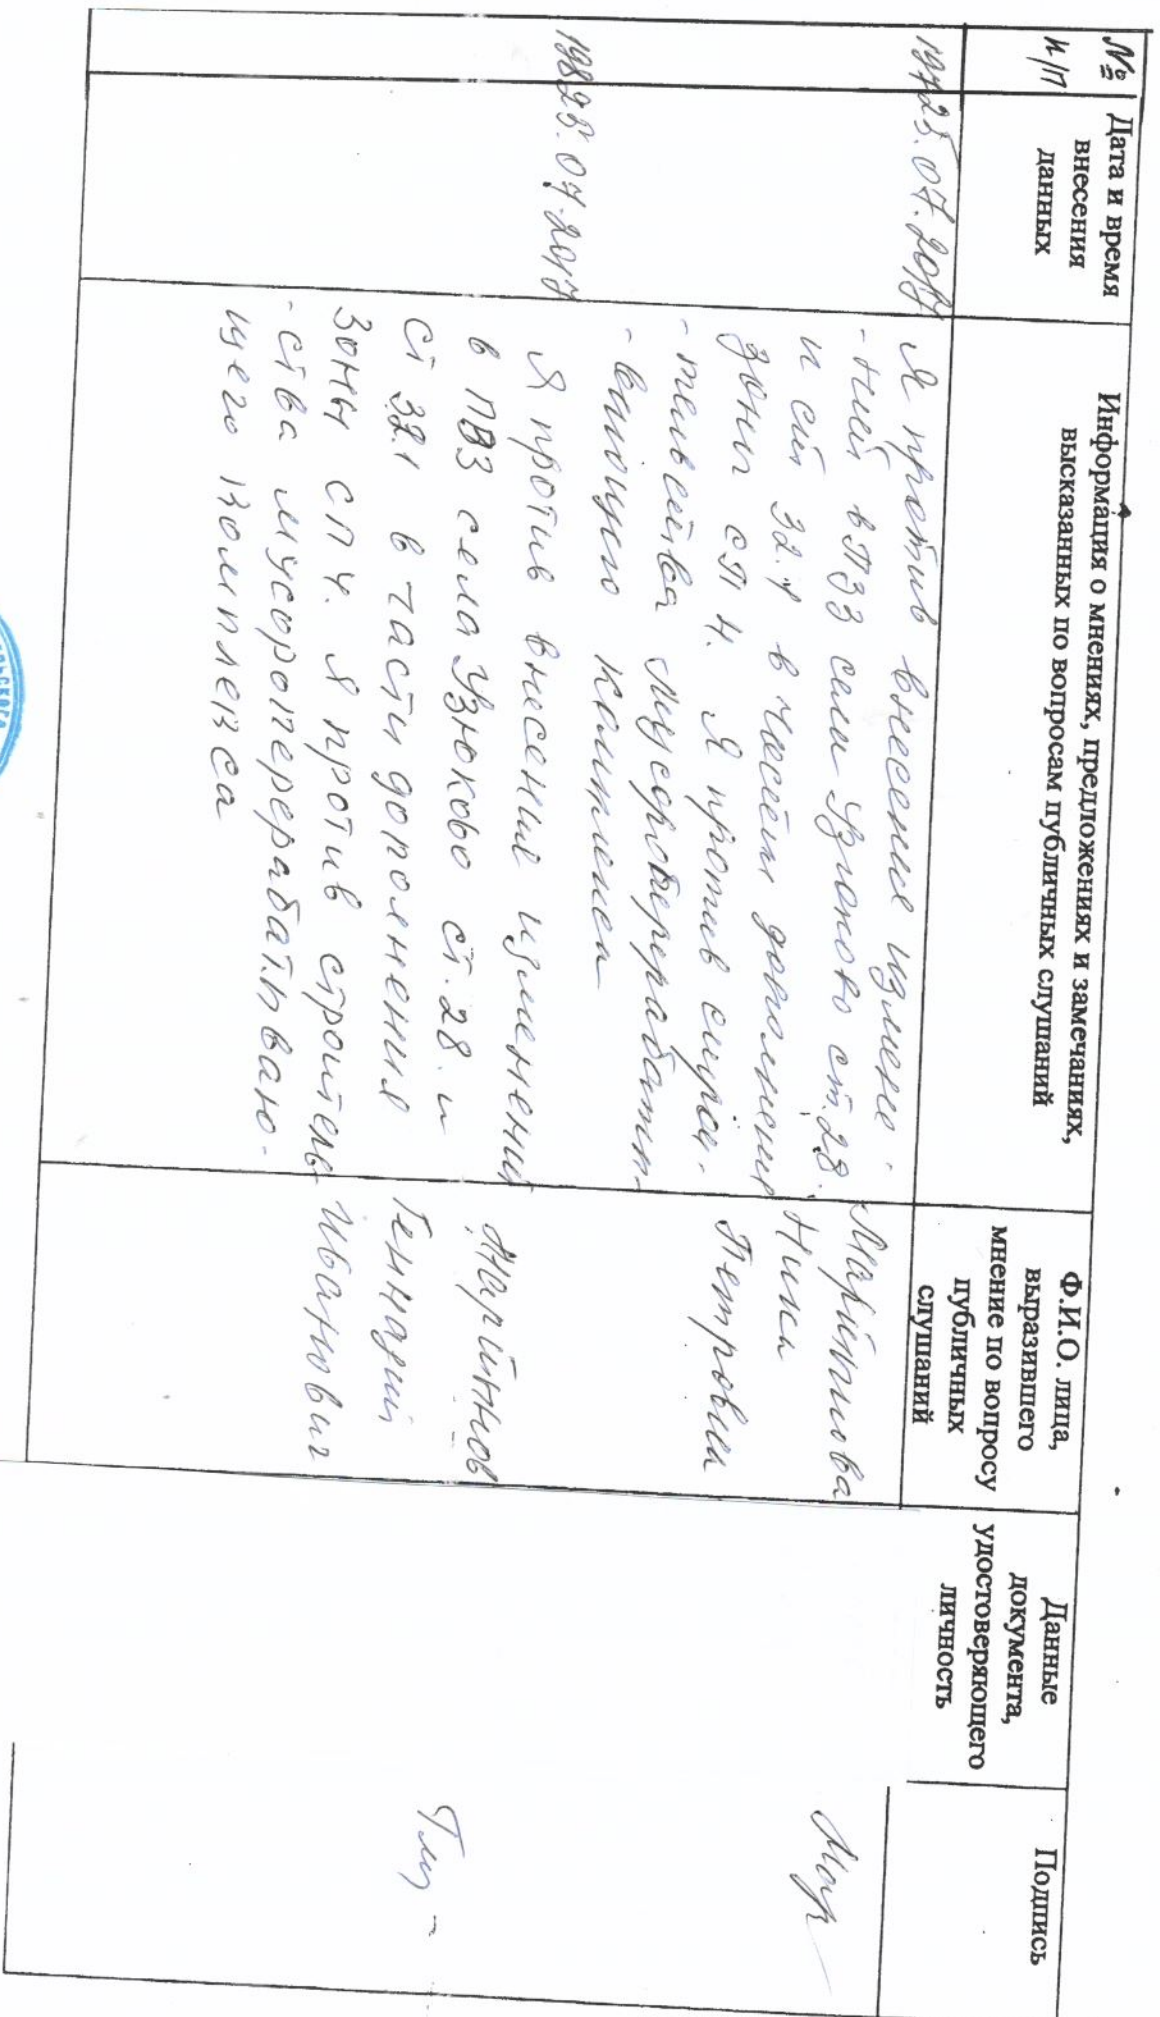 № п/п
Дата и время внесения данных
Информация о мнениях, предложениях и замечаниях,
высказанных по вопросам публичных слушаний
Ф.И.О. лица,
выразившего
мнение по вопросу
публичных
слушаний
Данные
документа,
удостоверяющего
личность
Подпись
197
25.07.2017
Я против внесение измене-
-ний в ПЗЗ села Узюково ст. 28.
и ст 32.1 в части дополнения
зоны СП 4. Я против строи-
-тельства мусороперерабаты-
-вающего комплекса
Марийнова
Нина
Петровна
Мар
198
25.07.2017
Я против внесение изменений
в ПВЗ села Узюково ст. 28. и
ст 32.1 в части дополнения
зоны СП Ч. Я против строитель-
-ства мусороперерабатываю-
щего комплекса
Марийнов
Геннадий
Иванович